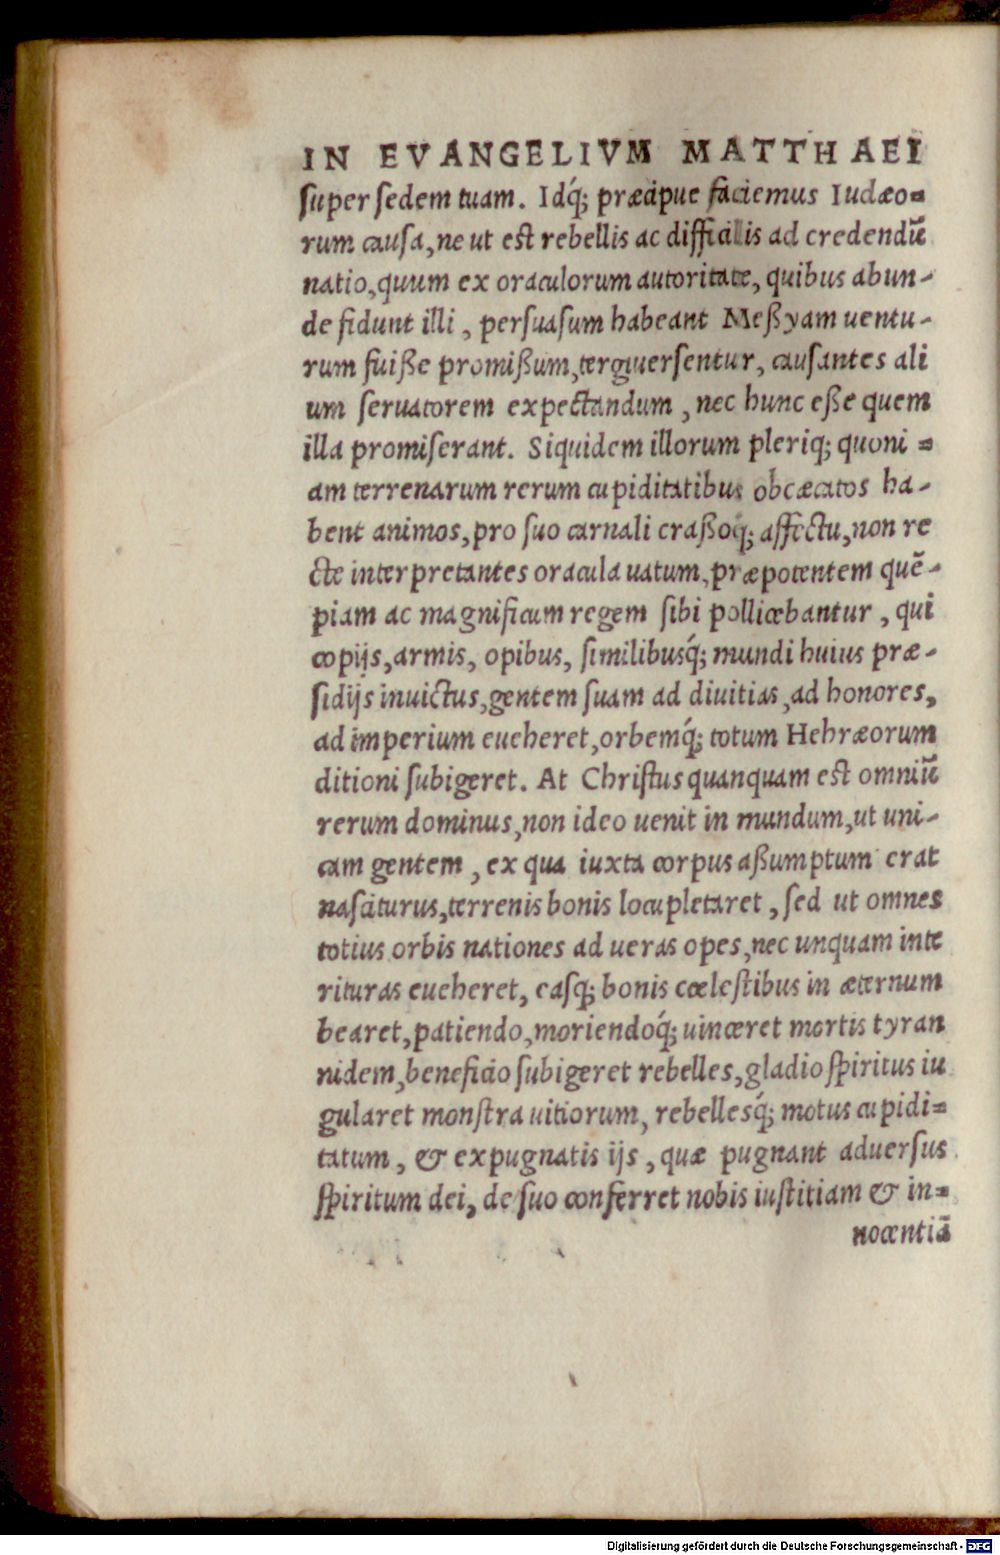 IN EVANGELIVM MATTHAEI
super sedem tuam. Idq́; præcipue faciemus Iudæo=
rum causa, ne ut est rebellis ac difficilis ad credendū
natio, quum ex oraculorum autoritate, quibus abun-
de fidunt illi, persuasum habeant Meßyam uentu-
rum fuiße promißum, tergiuersentur, causantes ali
um seruatorem expectandum, nec hunc eße quem
illa promiserant. Siquidem illorum pleriq; quoni=
am terrenarum rerum cupiditatibus obcæcatos ha-
bent animos, pro suo carnali craßoq́; affectu, non re
cte interpretantes oracula uatum, præpotentem quē-
piam ac magnificum regem sibi pollicebantur, qui
copijs, armis, opibus, similibusq́; mundi huius præ-
sidijs inuictus, gentem suam ad diuitias, ad honores,
ad imperium eueheret, orbemq́; totum Hebræorum
ditioni subigeret. At Christus quanquam est omniū
rerum dominus, non ideo uenit in mundum, ut uni-
cam gentem, ex qua iuxta corpus aßumptum erat
nasciturus, terrenis bonis locupletaret, sed ut omnes
totius orbis nationes ad ueras opes, nec unquam inte
rituras eueheret, easq́; bonis cœlestibus in æternum
bearet, patiendo, moriendoq́; uinceret mortis tyran
nidem, beneficio subigeret rebelles, gladio spiritus iu
gularet monstra uitiorum, rebellesq́; motus cupidi=
tatum, & expugnatis ijs, quæ pugnant aduersus
spiritum dei, de suo conferret nobis iustitiam & in=
nocentiā
Digitalisierung gefördert durch die Deutsche Forschungsgemeinschaft - DFG